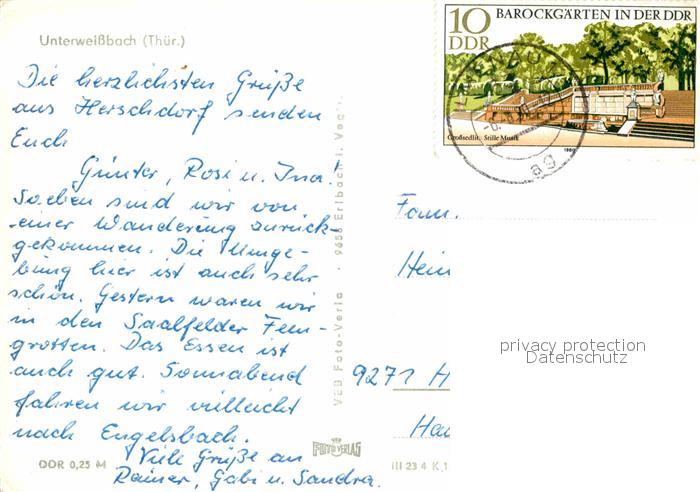 Unterweißbach (Thür.)
10 BAROCKGÄRTEN IN DER DDR
DDR
Großsedlitz, Stille Musik
1980
Die herzlichsten Grüße
aus Herschdorf senden
Euch
Günter, Rosi u. Ina!
Soeben sind wir von
einer Wanderung zurück-
gekommen. Die Umge-
bung hier ist auch sehr
schön. Gestern waren wir
in den Saalfelder Feen-
grotten. Das Essen ist
auch gut. Sonnabend
fahren wir vielleicht
nach Engelsbach.
Viele Grüße an
Rainer, Gabi u. Sandra.
VEB Foto-Verla 9656 Erlbach i. Vog
Fam.
Hein
9271 H
Hau
privacy protection
Datenschutz
DDR 0,25 M
FOTO VERLAG
III 23 4 K 1
ag